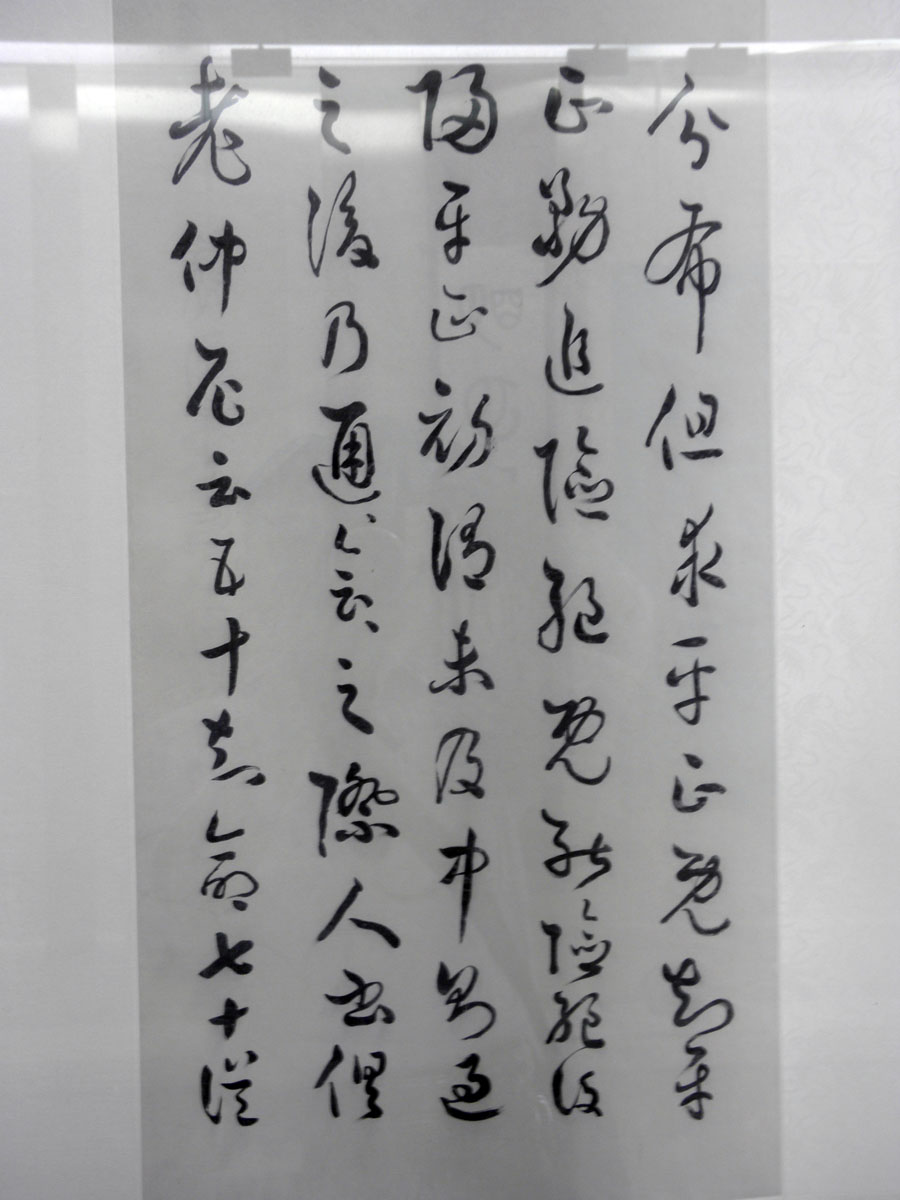 分布但求平正既知平
正務追險絕既能險絕復
歸平正初謂未及中則過
之後乃通〻會〻之際人書俱
老仲尼云五十知命七十從